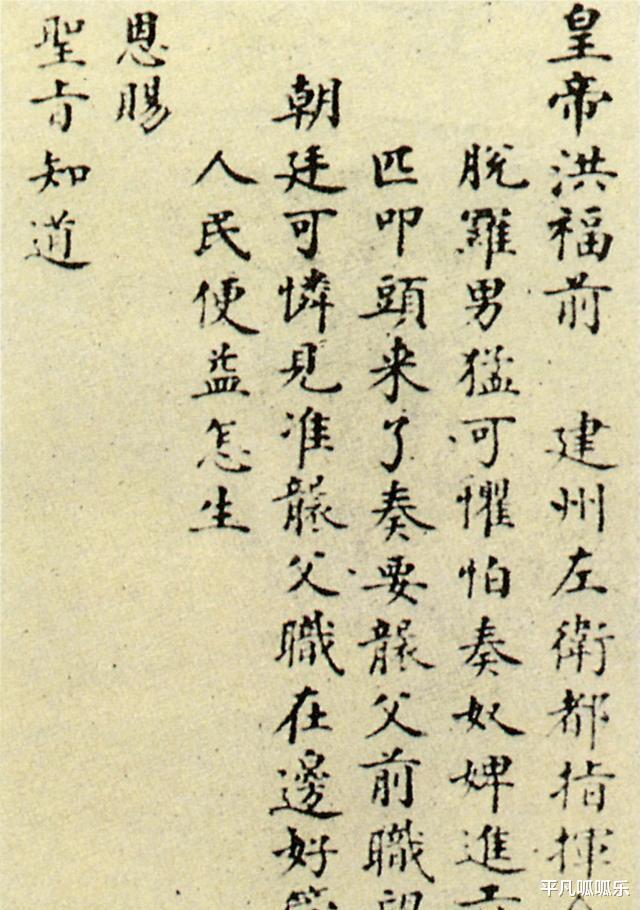 皇帝洪福前　建州左衛都指揮
脫羅男猛可懼怕奏奴婢進
匹叩頭来了奏要襲父前職望
朝廷可憐見准襲父職在邊好
人民便益怎生
恩賜
聖㫖知道
平凡呱呱乐